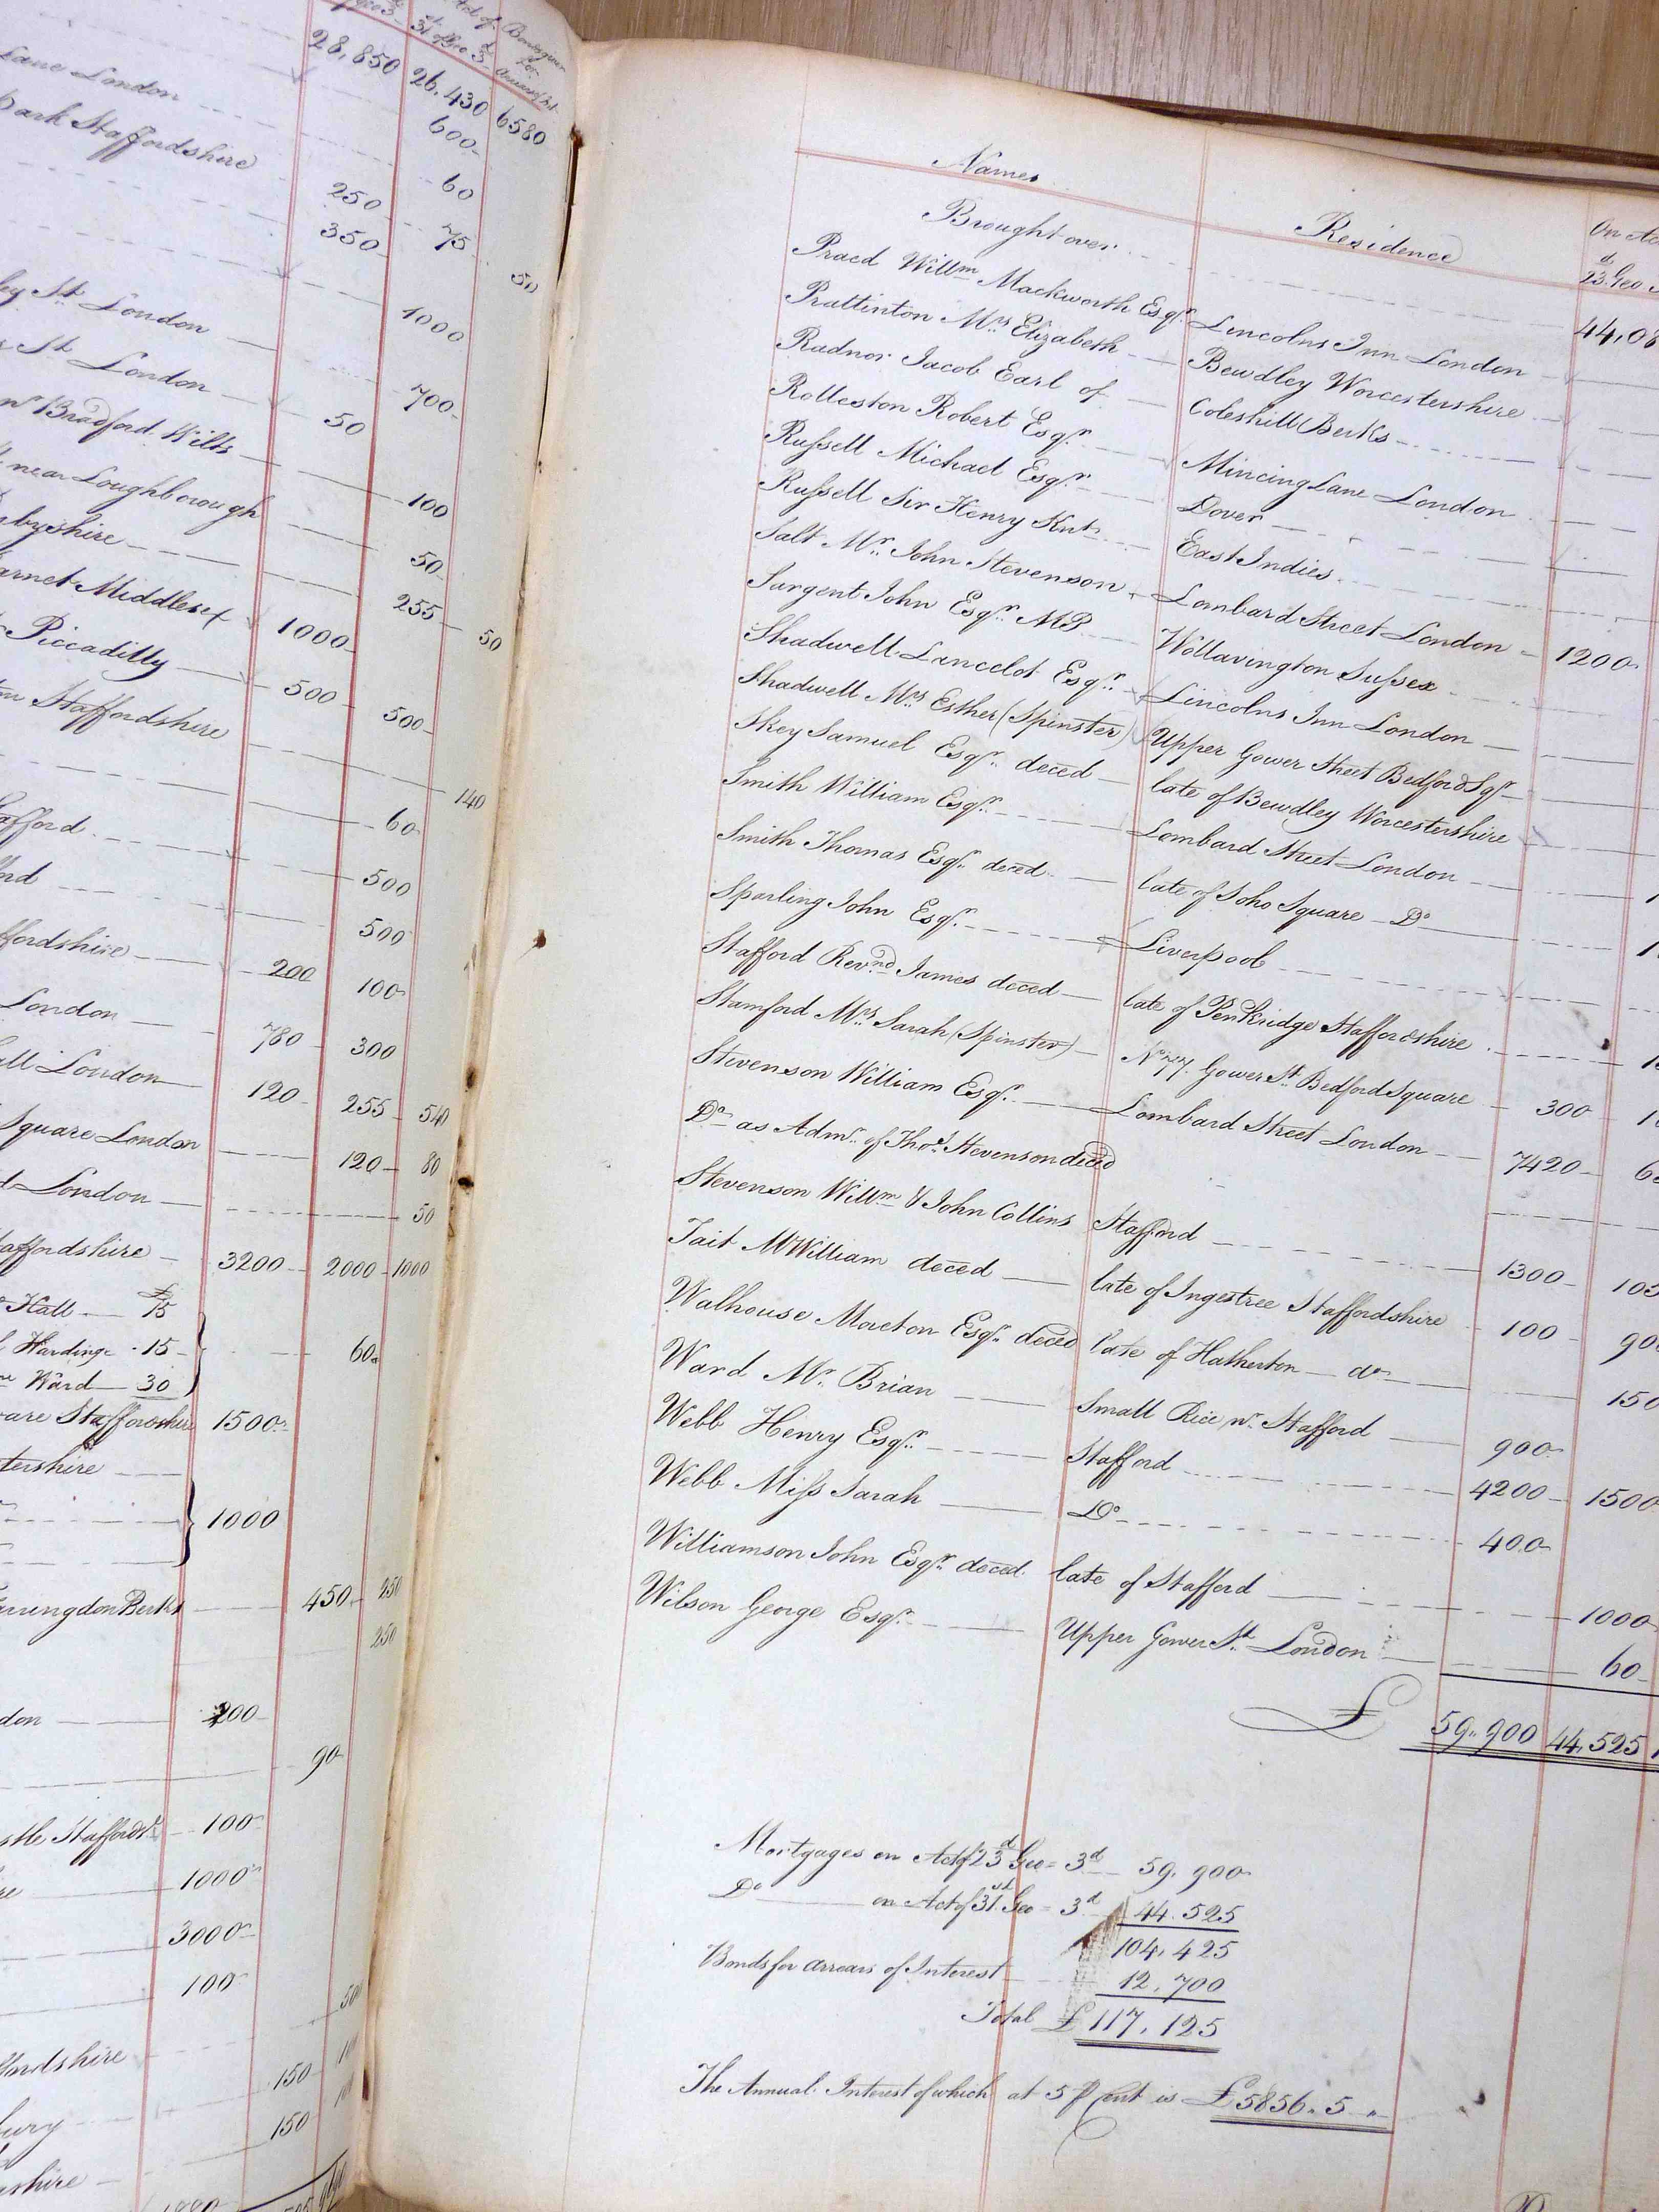 28,850 26,430 6580
Lane London 600
Park Staffordshire 60
250 75
350 50
St London 1000
St London 700
50
Bradford Wilts 100
near Loughborough 50
255 50
Barnet Middlesex 1000
Piccadilly 500 500
Staffordshire 140
60
500
500
200 100
London 780 300
London 120 255 50
Square London 120 80
London 50
Staffordshire 3200 2000 1000
Hall £ 15
Harding 15 60
Ward 30
Staffordshire 1500
1000
Farringdon Berks 450 250
250
200
90
100
1000
3000
100
50
150
150
Names Residence On
23d Geo
Brought over 44,08
Praed Willm Mackworth Esqr Lincolns Inn London
Prattinton Mrs Elizabeth Bewdley Worcestershire
Radnor Jacob Earl of Coleshill Berks
Rolleston Robert Esqr Mincing Lane London
Russell Michael Esqr Dover
Russell Sir Henry Knt East Indies
Salt Mr John Stevenson Lombard Street London 1200
Sargent John Esqr MP Wollavington Sussex
Shadwell Lancelot Esqr Lincolns Inn London
Shadwell Mrs Esther (Spinster) Upper Gower Street Bedford Sqr
Skey Samuel Esqr deced late of Bewdley Worcestershire
Smith William Esqr Lombard Street London
Smith Thomas Esqr deced late of Soho Square Do
Sparling John Esqr Liverpool
Stafford Revnd James deced late of Penkridge Staffordshire
Stamford Mrs Sarah (Spinster) No 77 Gower St Bedford Square 300
Stevenson William Esqr Lombard Street London 7420
Do as Admr of Thos Stevenson deced
Stevenson Willm & John Collins Stafford 1300
Tait Mr William deced late of Ingestree Staffordshire 100
Walhouse Moreton Esqr deced late of Hatherton do 150
Ward Mr Brian Small Rice nr Stafford 900
Webb Henry Esqr Stafford 4200 1500
Webb Miss Sarah Do 400
Williamson John Esqr deced late of Stafford 1000
Wilson George Esqr Upper Gower St London 60
£ 59,900 44,525
Mortgages on Act of 23d Geo 3d 59,900
Do on Act of 31st Geo 3d 44,525
104,425
Bonds for arrears of Interest 12,700
Total £117,125
The Annual Interest of which at 5 P Cent is £5856.5